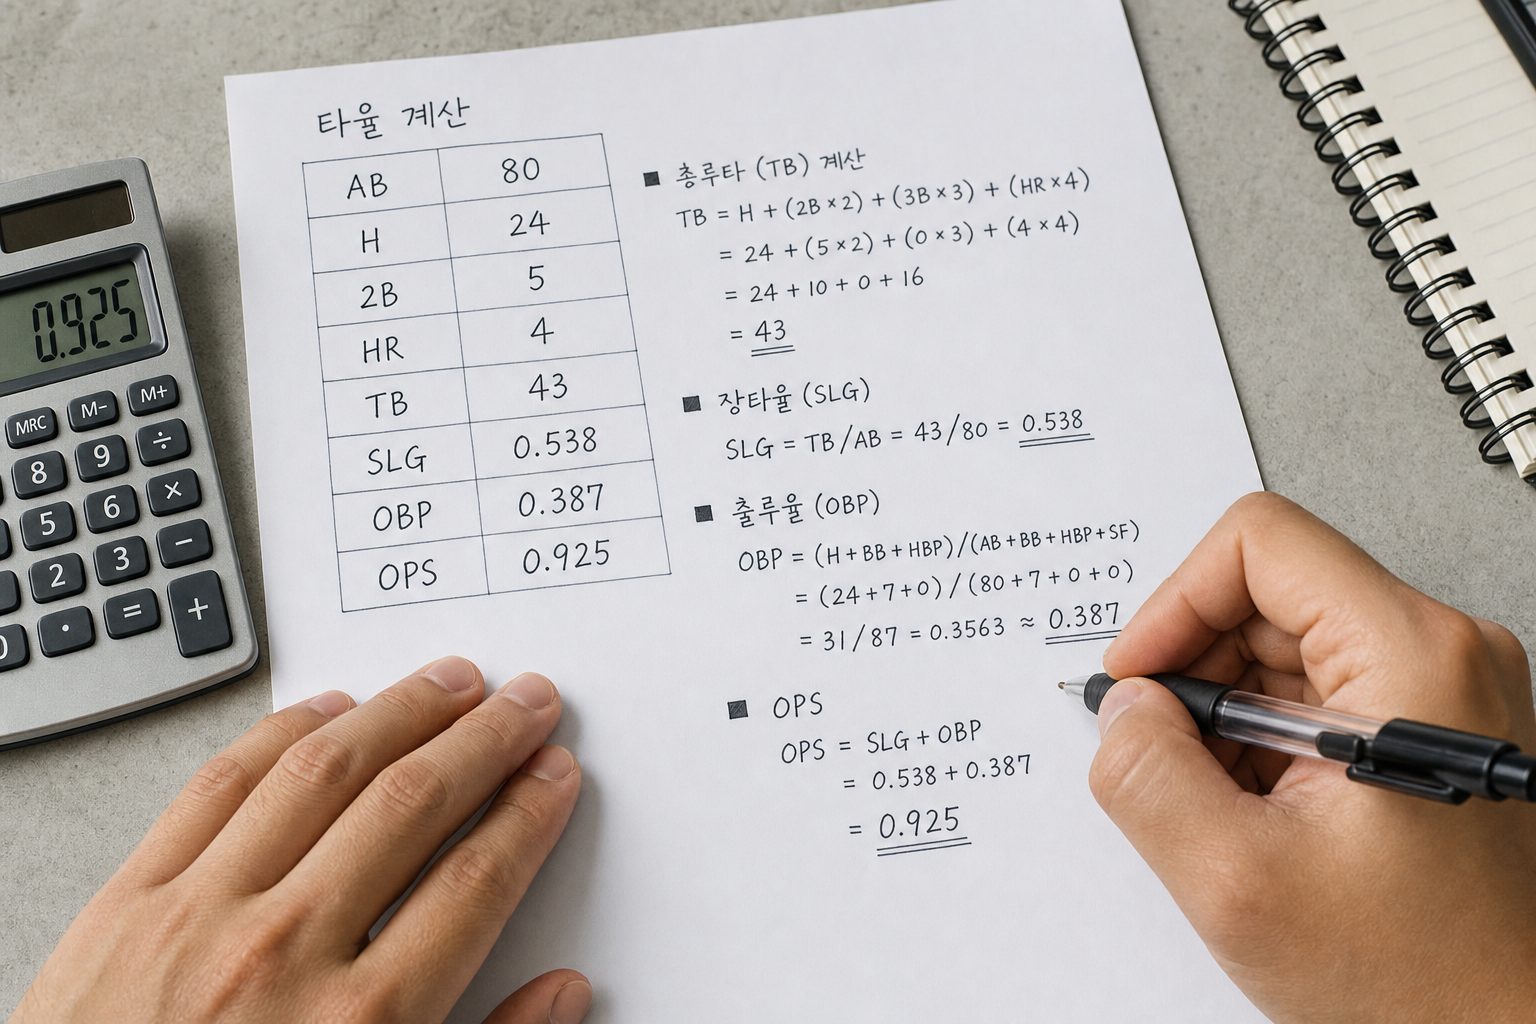 타율 계산
AB 80
H 24
2B 5
HR 4
TB 43
SLG 0.538
OBP 0.387
OPS 0.925
■ 총루타 (TB) 계산
TB = H + (2B × 2) + (3B × 3) + (HR × 4)
= 24 + (5 × 2) + (0 × 3) + (4 × 4)
= 24 + 10 + 0 + 16
= 43
■ 장타율 (SLG)
SLG = TB/AB = 43/80 = 0.538
■ 출루율 (OBP)
OBP = (H + BB + HBP)/(AB + BB + HBP + SF)
= (24 + 7 + 0) / (80 + 7 + 0 + 0)
= 31/87 = 0.3563 ≈ 0.387
■ OPS
OPS = SLG + OBP
= 0.538 + 0.387
= 0.925
0.925
MRC M- M+
8 9 ÷
5 6 ×
2 3 −
0 · = +